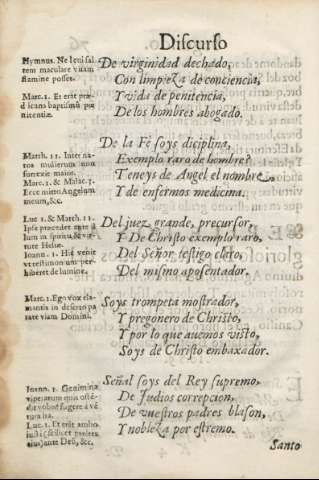 Discurso
Hymnus. Ne leui sal
tem maculare vitam
flamine posses.
De virginidad dechado,
Con limpieza de conciencia,
Marc. 1. Et erat præ
dicans baptismũ pœ
nitentiæ.
Y vida de penitencia,
De los hombres abogado.
De la Fè soys diciplina,
Matth. 11. Inter na-
tos mulierum non
surrexit maior.
Exemplo raro de hombre?
Marc. 1. & Malac. 3.
Ecce mitto Angelum
meum, &c.
Teneys de Angel el nombre
Y de enfermos medicina.
Luc. 1. & Matth. 11.
Ipse præcedet ante il
lum in spiritu & vir-
tute Heliæ.
Del juez grande, precursor,
Y De Christo exemplo raro,
Ioann. 1. Hic venit
vt testimonium per-
hiberet de lumine.
Del Señor testigo claro,
Del mismo aposentador.
Marc. 1. Ego vox cla
mantis in deserto pa
rate viam Domini.
Soys trompeta mostrador,
Y pregonero de Christo,
Y por lo que auemos visto,
Soys de Christo embaxador.
Señal soys del Rey supremo,
Ioann. 1. Genimina
viperarum quis osté-
dit vobis fugere à vé
tura ira.
De Iudios correpcion,
De vuestros padres blason,
Luc. 1. Et erãt ambo
iusti
ante Deũ, &c.
Y nobleza por estremo.
Santo